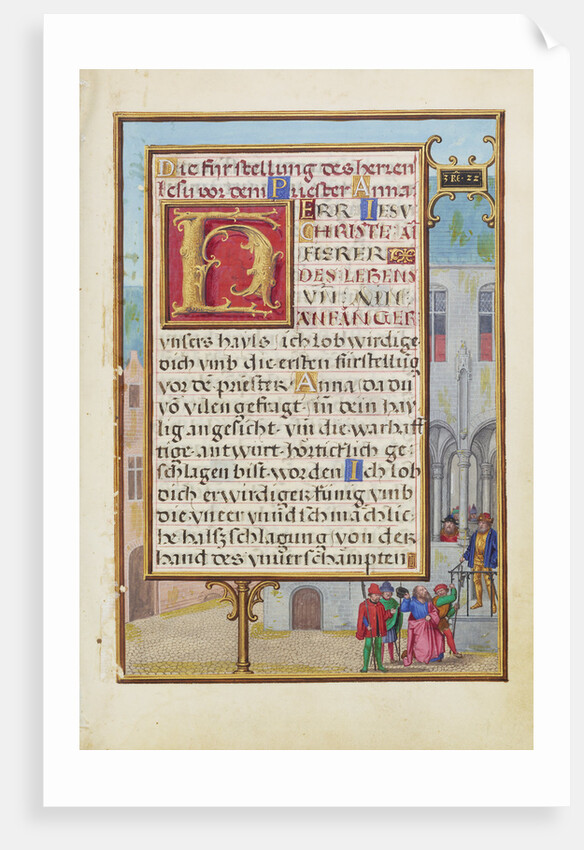 Die fürstellung des herren
Iesu vor dem Priester Anna·
HERR IESV
CHRISTE AI
FIERER
DES LEBENS
VN AIN
ANFÄNGER
vnsers hayls ich lob wirdige
dich vmb die ersten fürstellung
vor dē priester Anna da du
vō vilen gefragt in dein hay
lig angesicht vm̄ die warhafft
tige antwurt hörticklich ge⸗
schlagen bist worden Ich lob
dich erwirdiger künig vmb
die vneer vnnd schmachlic⸗
he halßschlagung von der
hand des vnuerschampten